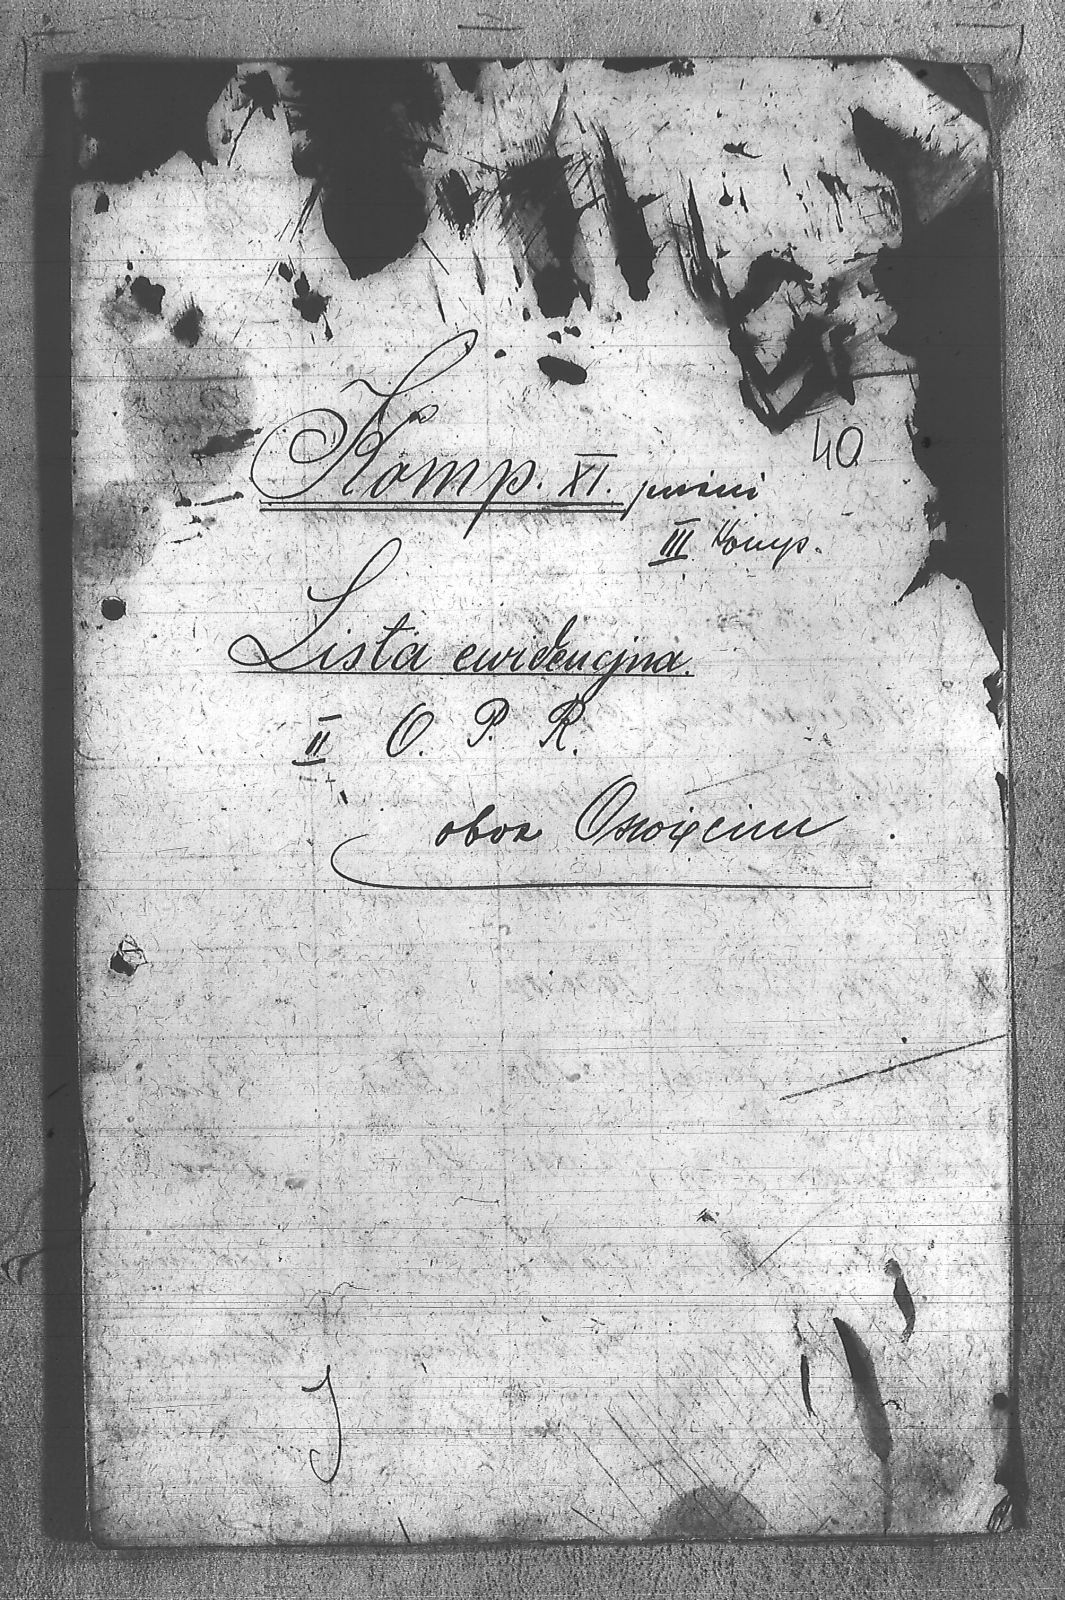 40
Komp. XI.
III Komp.
Lista ewidencyjna.
II O. P. R.
obok Oswięcim
J